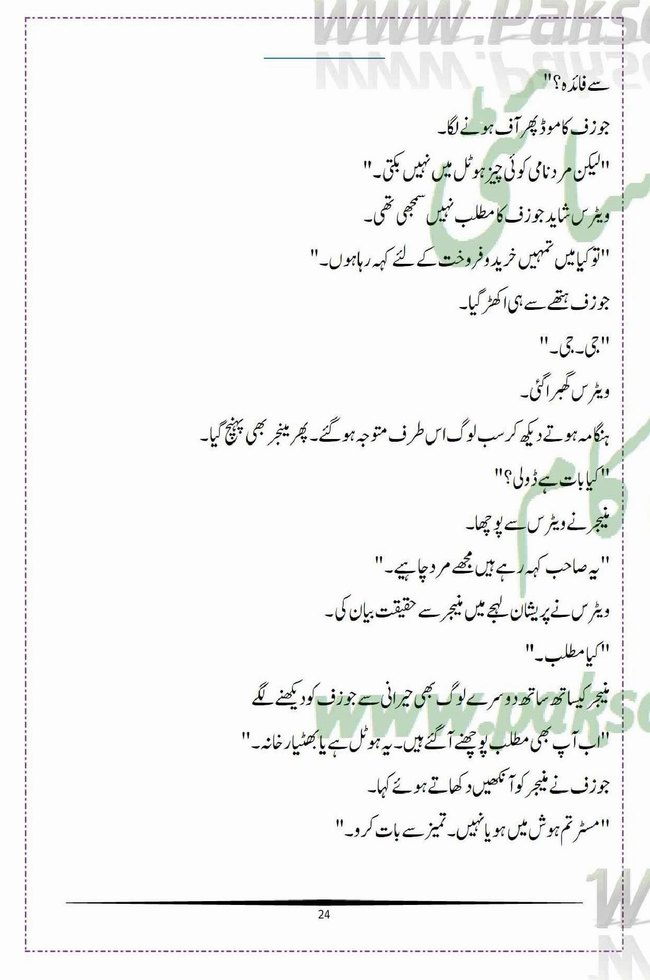 www.Pakso
سے فائدہ؟"
جوزف کا موڈ پھر آف ہونے لگا۔
"لیکن مرد نامی کوئی چیز ہوٹل میں نہیں بکتی۔"
ویٹرس شاید جوزف کا مطلب نہیں سمجھی تھی۔
"تو کیا میں تمہیں خرید و فروخت کے لئے کہہ رہا ہوں۔"
جوزف ہتھے سے ہی اکھڑ گیا۔
"جی۔ جی۔"
ویٹرس گھبرا گئی۔
ہنگامہ ہوتے دیکھ کر سب لوگ اس طرف متوجہ ہو گئے۔ پھر مینجر بھی پہنچ گیا۔
"کیا بات ہے ڈولی؟"
مینجر نے ویٹرس سے پوچھا۔
"یہ صاحب کہہ رہے ہیں مجھے مرد چاہیے۔"
ویٹرس نے پریشان لہجے میں منیجر سے حقیقت بیان کی۔
"کیا مطلب۔"
منیجر کیساتھ ساتھ دوسرے لوگ بھی حیرانی سے جوزف کو دیکھنے لگے
www.pakso
"اب آپ بھی مطلب پوچھنے آ گئے ہیں۔ یہ ہوٹل ہے یا بھٹیار خانہ۔"
جوزف نے منیجر کو آنکھیں دکھاتے ہوئے کہا۔
"مسٹر تم ہوش میں ہو یا نہیں۔ تمیز سے بات کرو۔"
24